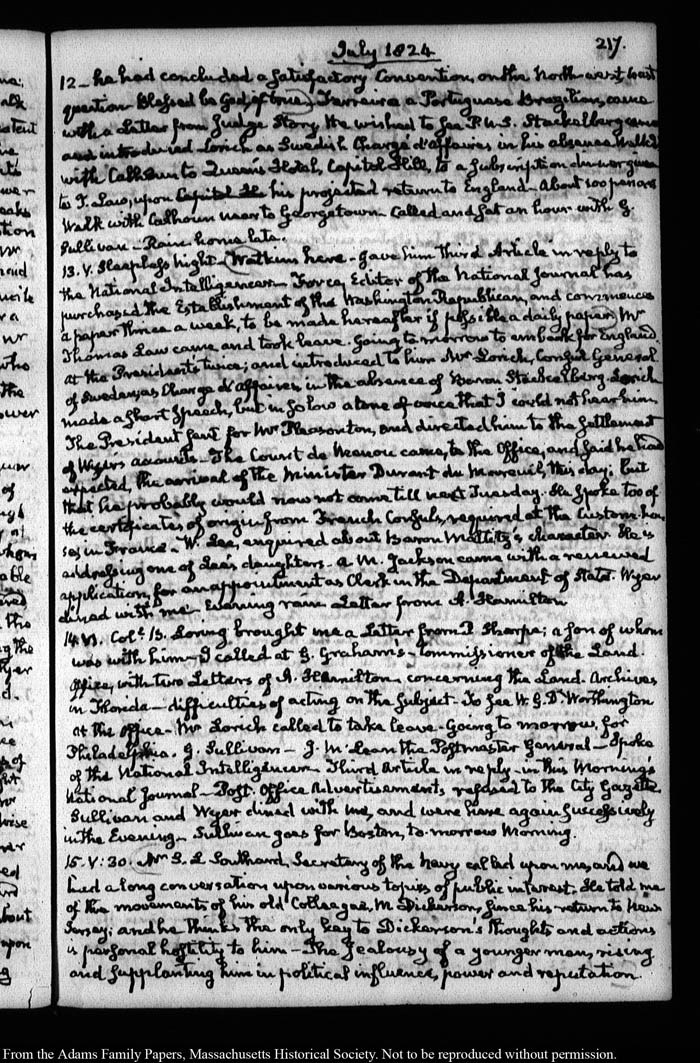 July 1824
217.
12 - he had concluded a satisfactory Convention, on the North-west, Coast
question Blessed be God, if true, Ferreira a Portuguese Brazilian, came
with a Letter from Judge Story. He wished to see P.U.S. Stackelberg came
and introduced Lorich as Swedish Chargé d'affaires in his absence Walked
with Calhoun to Queen's Hotel, Capitol Hill, to a subscription dinner given
to T. Law, upon his projected return to England - About 100 persons
Walk with Calhoun near to Georgetown - Called and sat an hour with G.
Sullivan - Rain home late.
13. V. Sleepless night - Watkins here - gave him third Article in reply to
the National Intelligencer - Force, Editor of the National Journal has
purchased the Establishment of the Washington Republican, and commences
a paper thrice a week, to be made hereafter if possible a daily paper, Mr
Thomas Law came and took leave. Going to-morrow to embark for England.
At the President's twice; and introduced to him Mr Lorich, Consul General
of Sweden, as Chargé d'affaires, in the absence of Baron Stackelberg. Lorich
made a short Speech, but in so low a tone of voice that I could not hear him.
The President sent for Mr Pleasonton, and directed him to the settlement
of Wyer's accounts - The Count de Menou came, to the Office, and said he had
expected, the arrival of the Minister Durant du Mareuil, this day; but
that he probably would now not come till next Tuesday. He spoke too of
the certificates of origin from French Consuls, required at the Custom-hou-
ses in France - W. Lee, enquired about Baron Maltitz's character. He is
addressing one of Lee's daughters - a M. Jackson came with a renewed
application, for an appointment as Clerk in the Department of State. Wyer
dined with me - Evening rain - Letter from A. Hamilton
14. VI. Colo. Loring brought me a Letter from Sharpe; a son of whom
was with him - I called at G. Graham's - Commissioner of the Land.
Office, with two Letters of A. Hamilton - concerning the Land. Archives
in Florida - difficulties of acting on the subject - To see W. G. D. Worthington
at the Office - Mr Lorich called to take leave - Going to-morrow, for
Philadelphia. G. Sullivan - J. McLean the Postmaster General - Spoke
of the National Intelligencer - Third Article in reply - in this Morning's
National Journal - Post. Office Advertisements, refused to the City Gazette
Sullivan and Wyer dined with me, and were here again successively
in the Evening - Sullivan goes for Boston, to-morrow Morning.
15. V: 30. Mr S. L. Southard, Secretary of the Navy called upon me, and we
had a long conversation upon various topics of public interest. He told me
of the movements of his old Colleague, M. Dickerson, since his return to New
Jersey; and he thinks the only key to Dickerson's thoughts and actions
is personal hostility to him - The jealousy of a younger man, rising
and supplanting him in political influence, power and reputation.
From the Adams Family Papers, Massachusetts Historical Society. Not to be reproduced without permission.